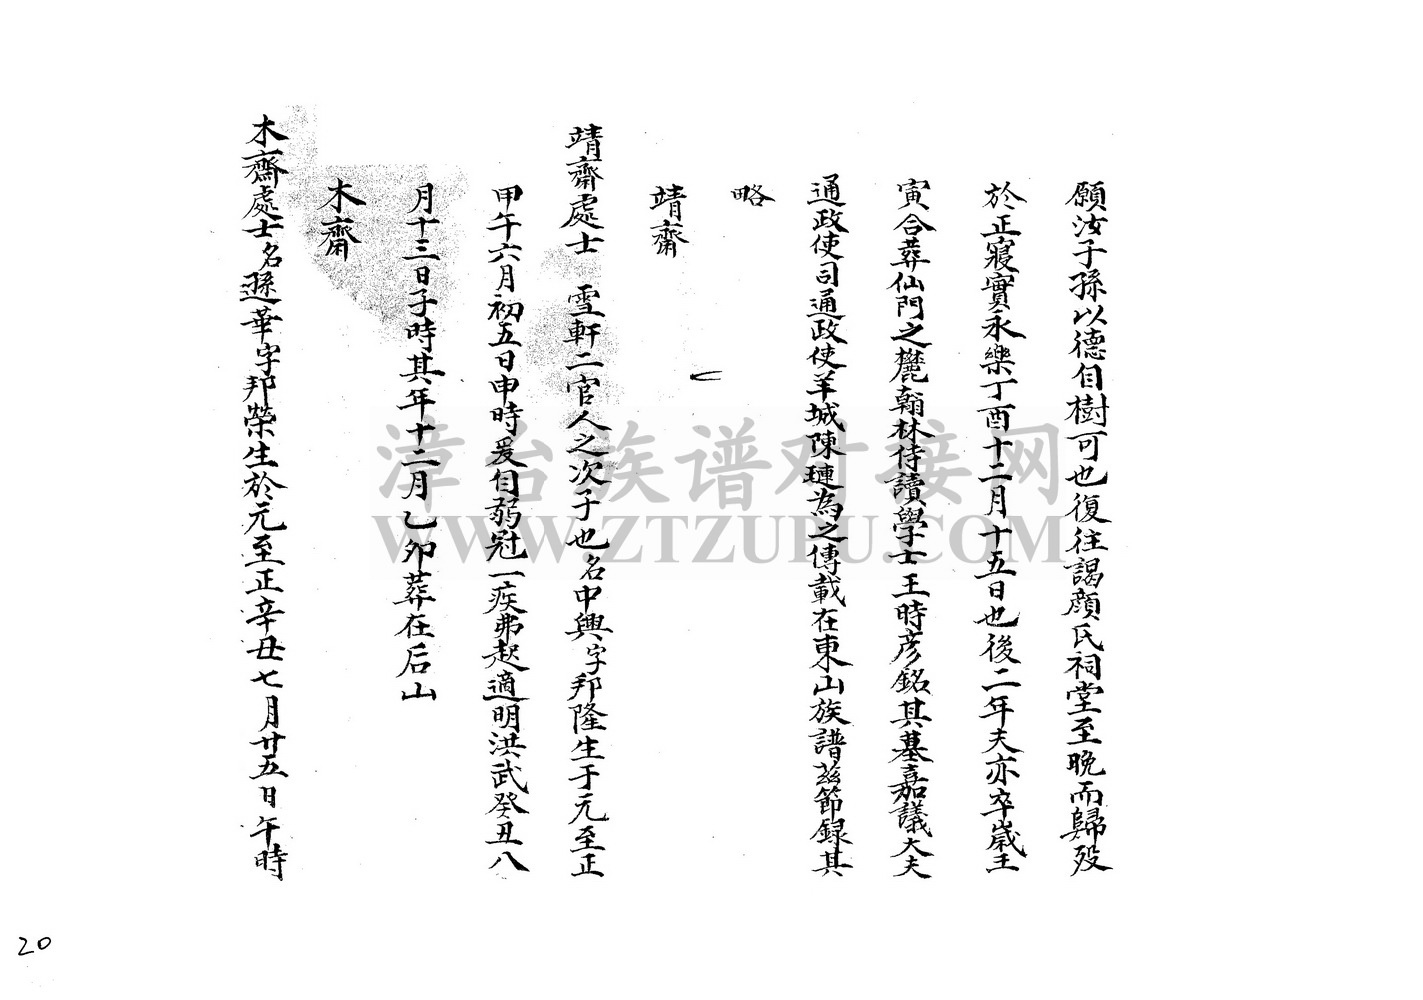 願汝子孫以德自樹可也復往謁顔氏祠堂至晚而歸殁
於正寢實永樂丁酉十二月十五日也後二年夫亦卒歲壬
寅合葬仙門之麓翰林侍讀學士王時彦銘其墓嘉議大夫
通政使司通政使羊城陳璉為之傳載在東山族譜茲節録其
略
靖齋
靖齋處士 雪軒二官人之次子也名中興字邦隆生于元至正
甲午六月初五日申時爰自弱冠一疾弗起適明洪武癸丑八
月十三日子時其年十二月乙卯葬在后山
木齋
木齋處士名遜華字邦榮生於元至正辛丑七月廿五日午時
漳台族谱对接网
WWW.ZTZUPU.COM
20